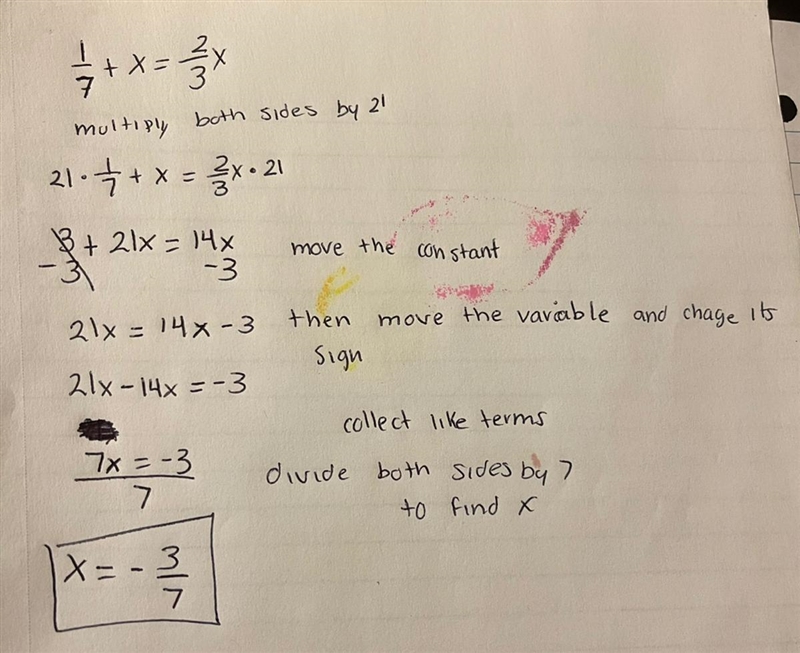 1/7 + x = 2/3 x
multiply both sides by 21
21 · 1/7 + x = 2/3 x · 21
3 + 21x = 14x move the constant
-3 -3
21x = 14x - 3 then move the variable and chage its
sign
21x - 14x = -3
collect like terms
7x = -3 divide both sides by 7
7 to find x
x = - 3/7